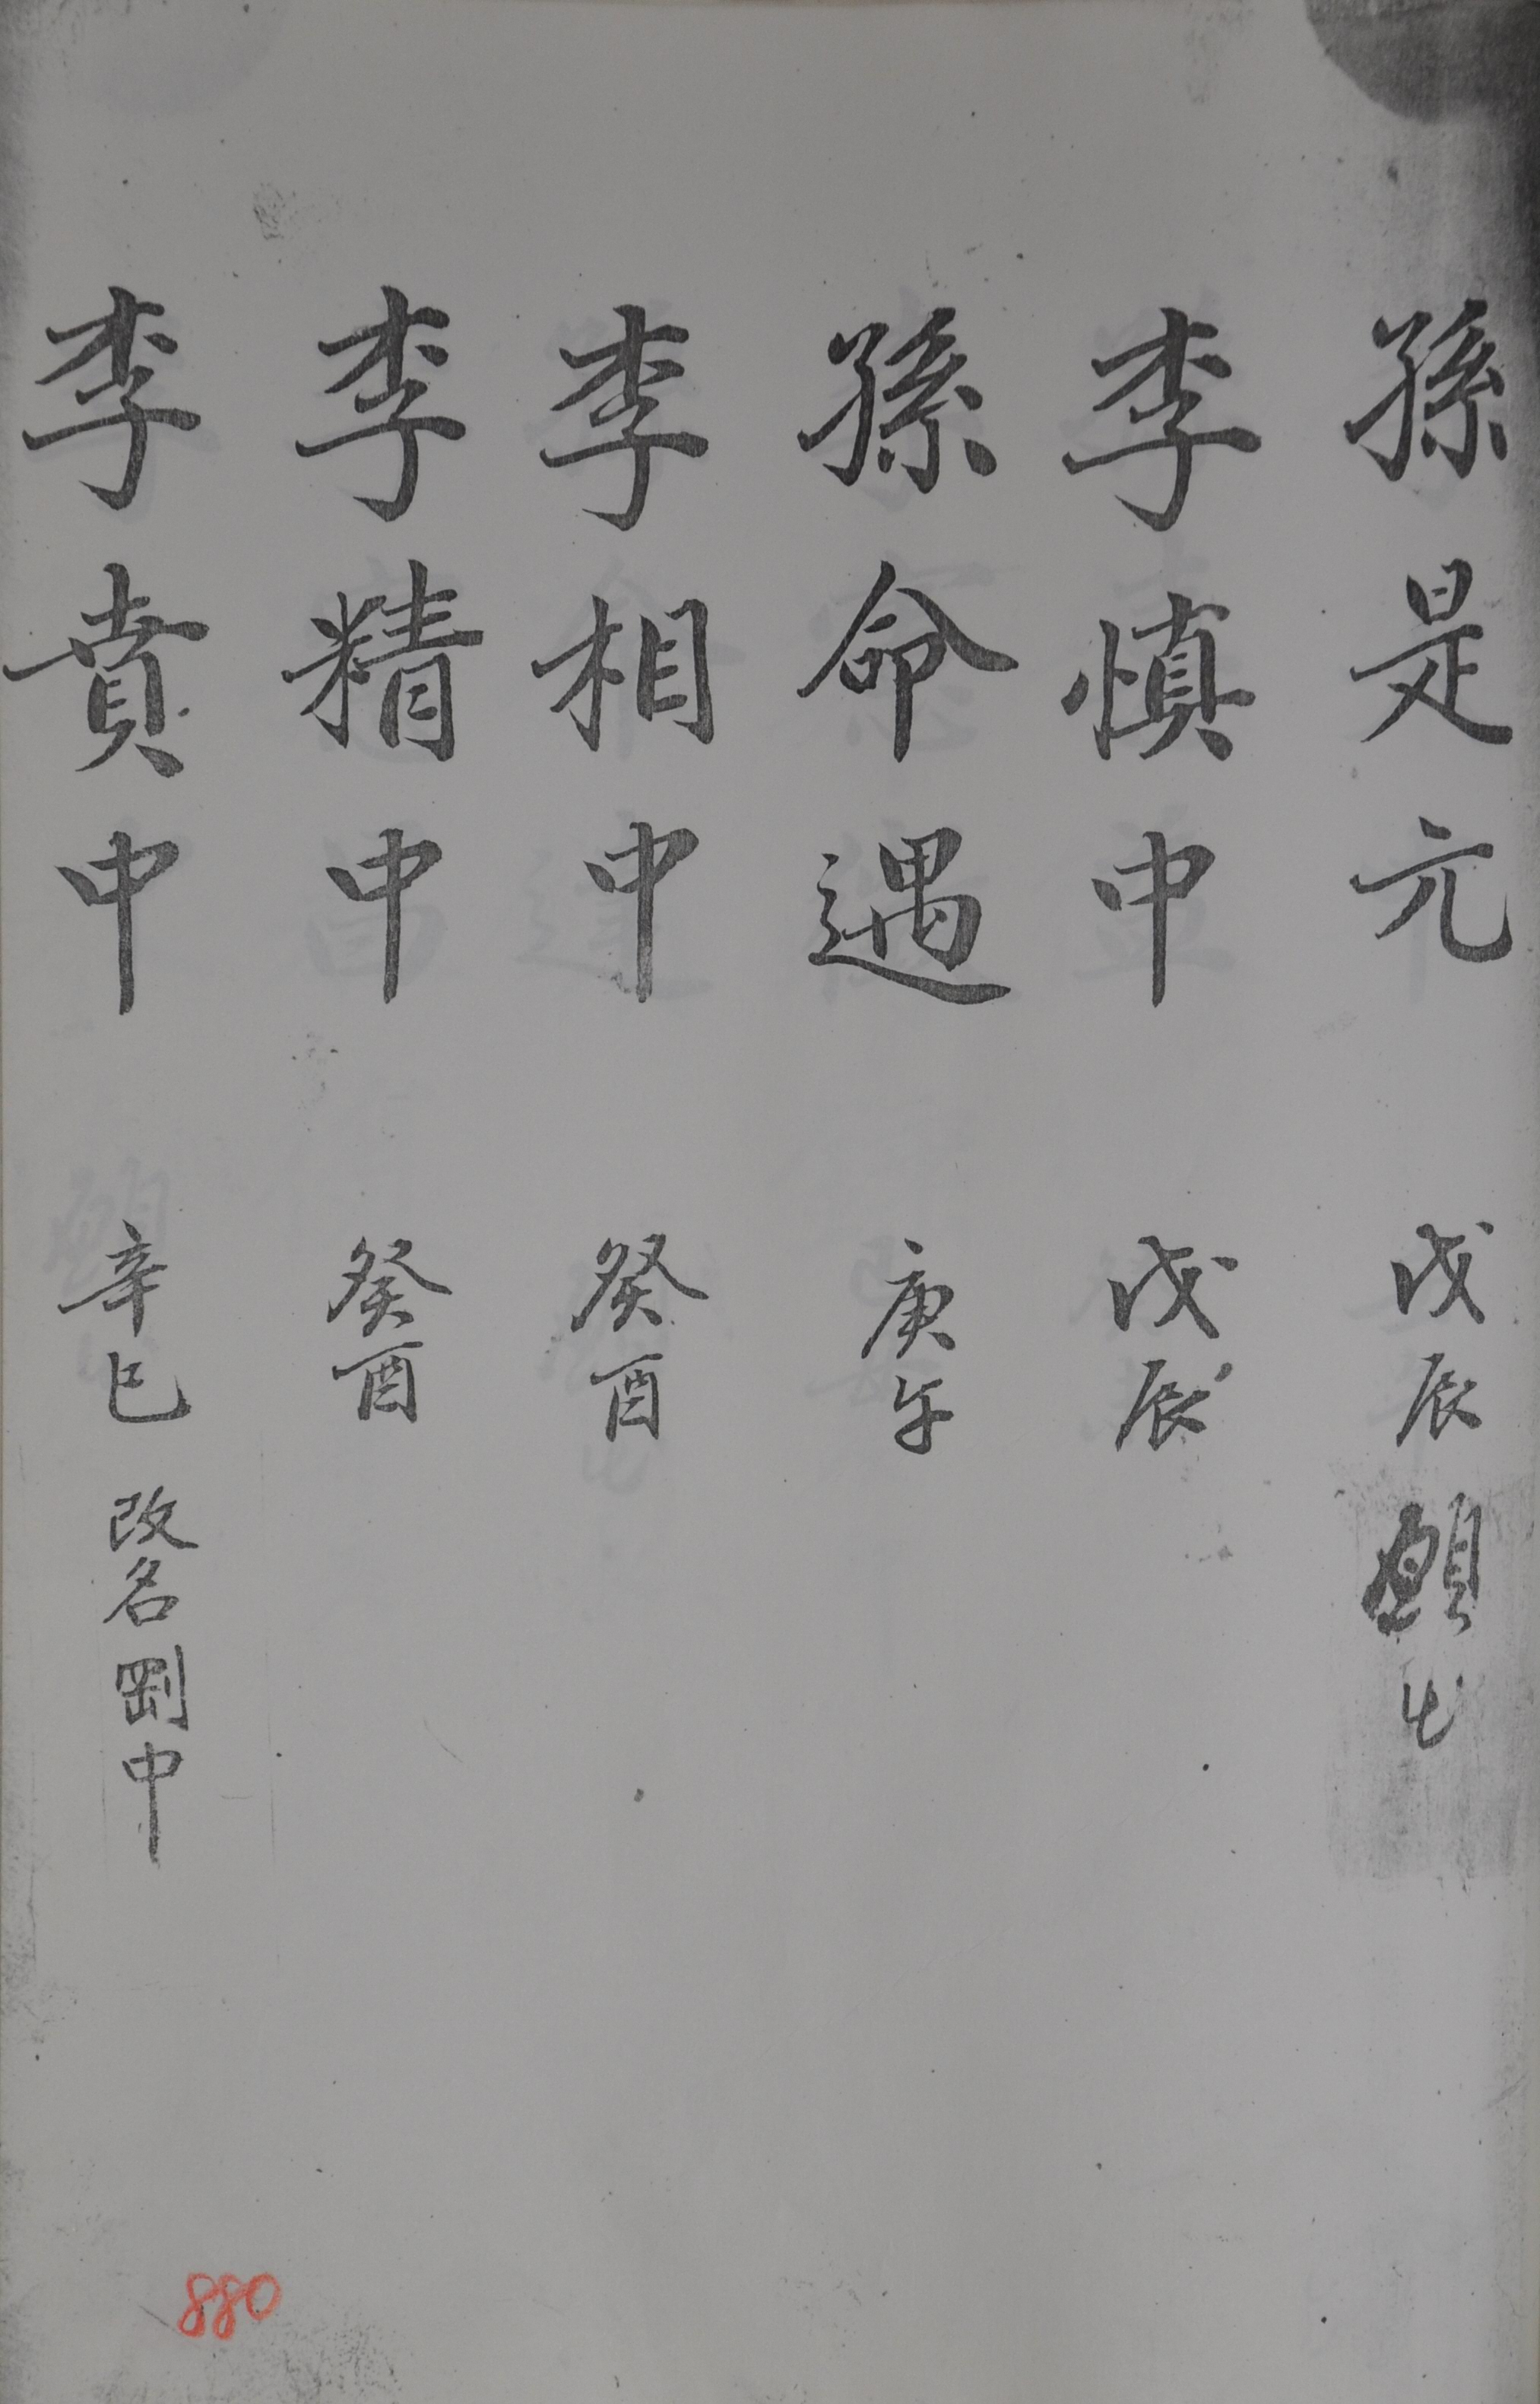 孫是元 戊辰
李慎中 戊辰
孫命遇 庚午
李相中 癸酉
李精中 癸酉
李賁中 辛巳 改名剛中
880